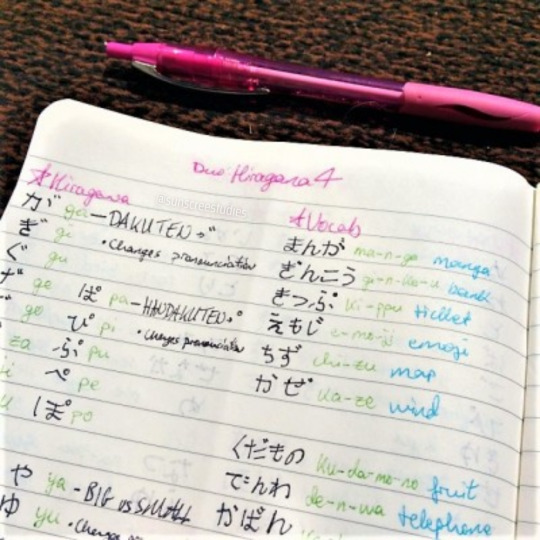 Duo: Hiragana 4
☆Hiragana
@sunscreestudies
が ga - DAKUTEN ゛
ぎ gi • Changes pronunciation
ぐ gu
げ ge ぱ pa - HANDAKUTEN ゜
go ぴ pi • changes pronunciation
za ぷ pu
ぺ pe
ぽ po
や ya - BIG vs SMALL
ゆ yu • Change
☆Vocab
まんが ma-n-ga manga
ぎんこう gi-n-ko-u bank
きっぷ ki-ppu ticket
えもじ e-mo-ji emoji
ちず chi-zu map
かぜ ka-ze wind
くだもの ku-da-mo-no fruit
でんわ de-n-wa telephone
かばん